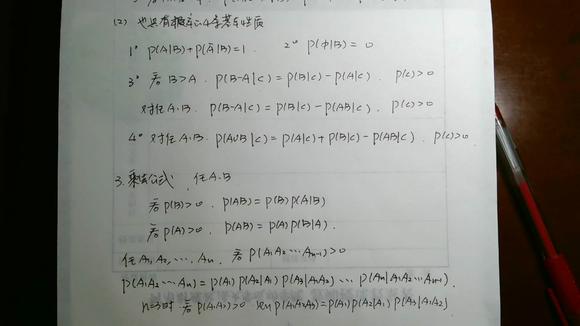 (2) 也具有概率的4条基本性质
1° P(A|B)+P(Ā|B)=1. 2° P(φ|B)=0
3° 若B>A. P(B-A|C)=P(B|C)-P(A|C). P(C)>0
对任A.B. P(B-A|C)=P(B|C)-P(AB|C). P(C)>0
4° 对任A.B. P(A∪B|C)=P(A|C)+P(B|C)-P(AB|C). P(C)>0
3. 乘法公式. 任A.B
若P(B)>0. P(AB)=P(B)P(A|B)
若P(A)>0. P(AB)=P(A)P(B|A).
任A₁,A₂,…,Aₙ. 若P(A₁A₂…Aₙ₋₁)>0
P(A₁A₂…Aₙ)=P(A₁)P(A₂|A₁)P(A₃|A₁A₂)…P(Aₙ|A₁A₂…Aₙ₋₁).
n=3时 若P(A₁A₂)>0 则P(A₁A₂A₃)=P(A₁)P(A₂|A₁)P(A₃|A₁A₂)